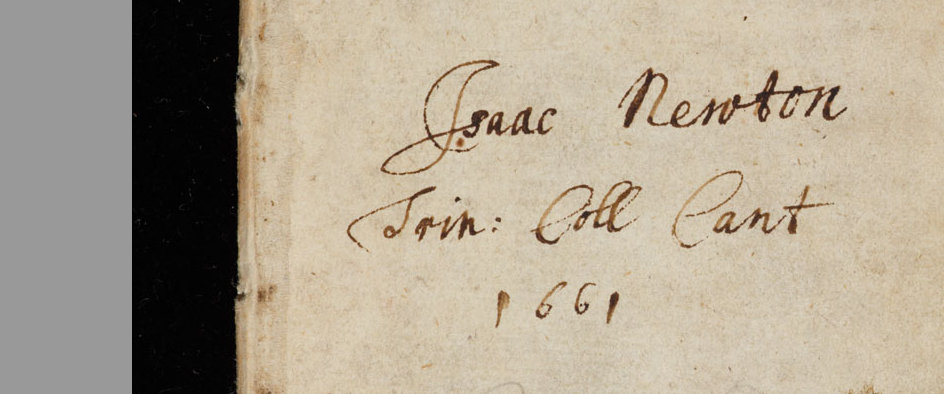 Isaac Newton
Trin: Coll Cant
1661